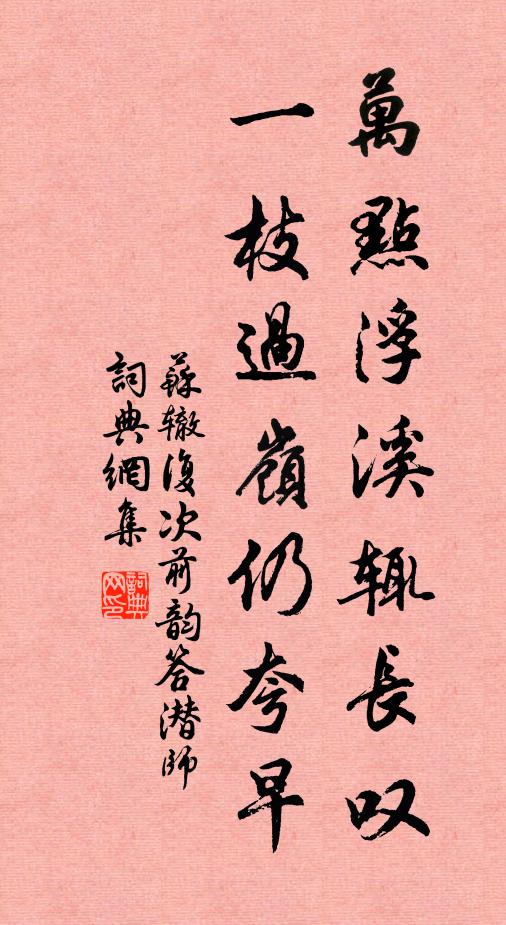 萬點浮溪辄長叹
一枝過嶺仍夸早
蘇辙復次前韵答潜師
詞典網集
詞典网印